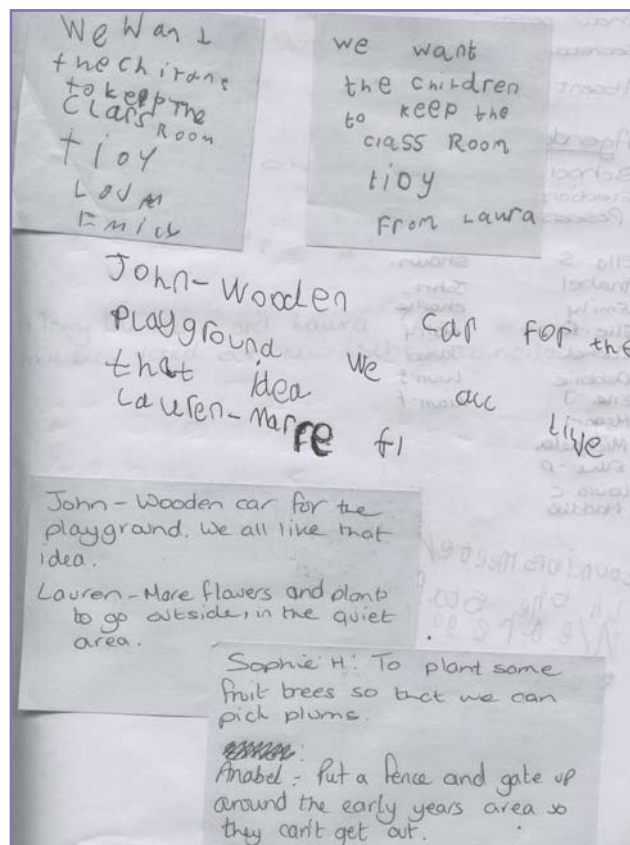 We Want
the Chirans
to keep The
Class Room
tioy
Emily
we want
the children
to keep the
class Room
tidy
From Laura
John-Wooden car for the
Playground we all live
that idea
Lauren-Marre fl
John - Wooden car for the
playground. We all like that
idea.
Lauren - More flowers and plants
to go outside, in the quiet
area.
Sophie H: To plant some
fruit trees so that we can
pick plums.
Anabel - Put a fence and gate up
around the early years area so
they can't get out.